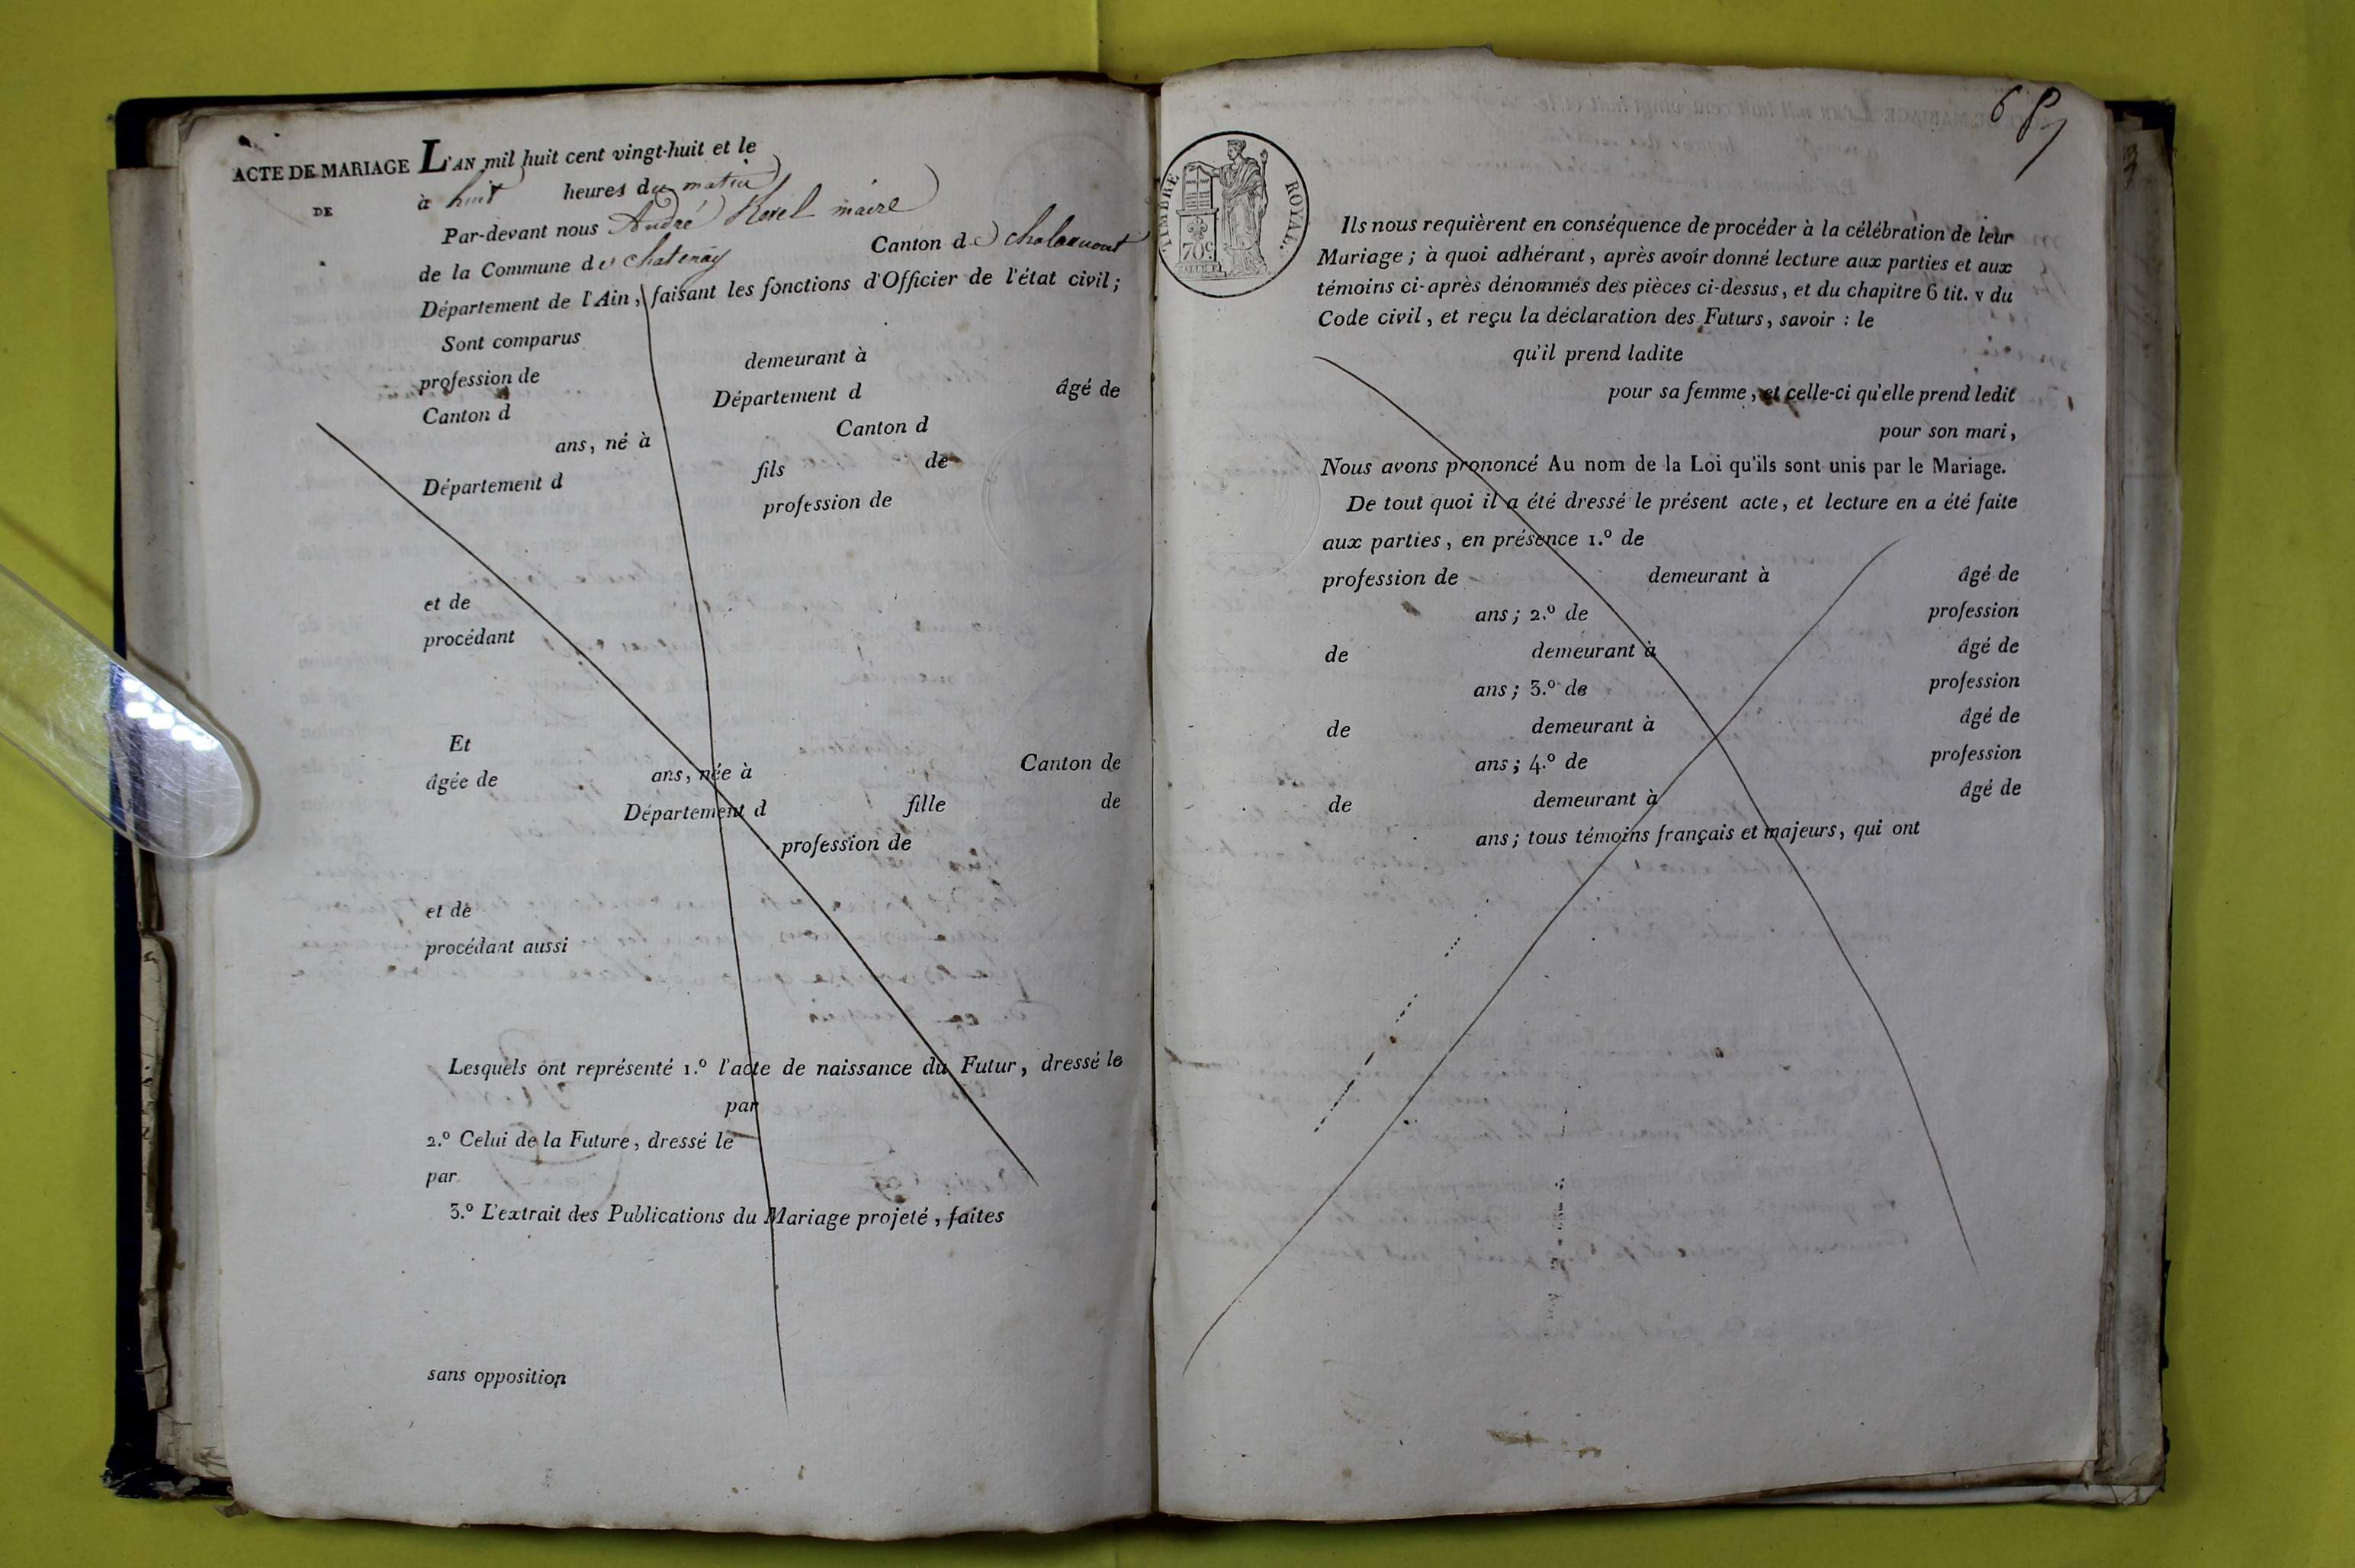 ACTE DE MARIAGE L'AN mil huit cent vingt-huit et le
DE
à huit heures du matin
Par-devant nous André Revel maire
de la Commune de chatenay Canton de chalamont
Département de l'Ain, faisant les fonctions d'Officier de l'état civil;
Sont comparus
profession de demeurant à
Canton d Département d âgé de
ans, né à Canton d
Département d fils de
profession de
et de
procédant
Et
âgée de ans, née à Canton de
Département d fille de
profession de
et de
procédant aussi
Lesquels ont représenté 1.º l'acte de naissance du Futur, dressé le
par
2.º Celui de la Future, dressé le
par
3.º L'extrait des Publications du Mariage projeté, faites
sans opposition
TIMBRE ROYAL.
70c
Ils nous requièrent en conséquence de procéder à la célébration de leur
Mariage; à quoi adhérant, après avoir donné lecture aux parties et aux
témoins ci-après dénommés des pièces ci-dessus, et du chapitre 6 tit. v du
Code civil, et reçu la déclaration des Futurs, savoir : le
qu'il prend ladite
pour sa femme, et celle-ci qu'elle prend ledit
pour son mari,
Nous avons prononcé Au nom de la Loi qu'ils sont unis par le Mariage.
De tout quoi il a été dressé le présent acte, et lecture en a été faite
aux parties, en présence 1.º de
profession de demeurant à âgé de
ans; 2.º de profession
de demeurant à âgé de
ans; 3.º de profession
de demeurant à âgé de
ans; 4.º de profession
de demeurant à âgé de
ans; tous témoins français et majeurs, qui ont